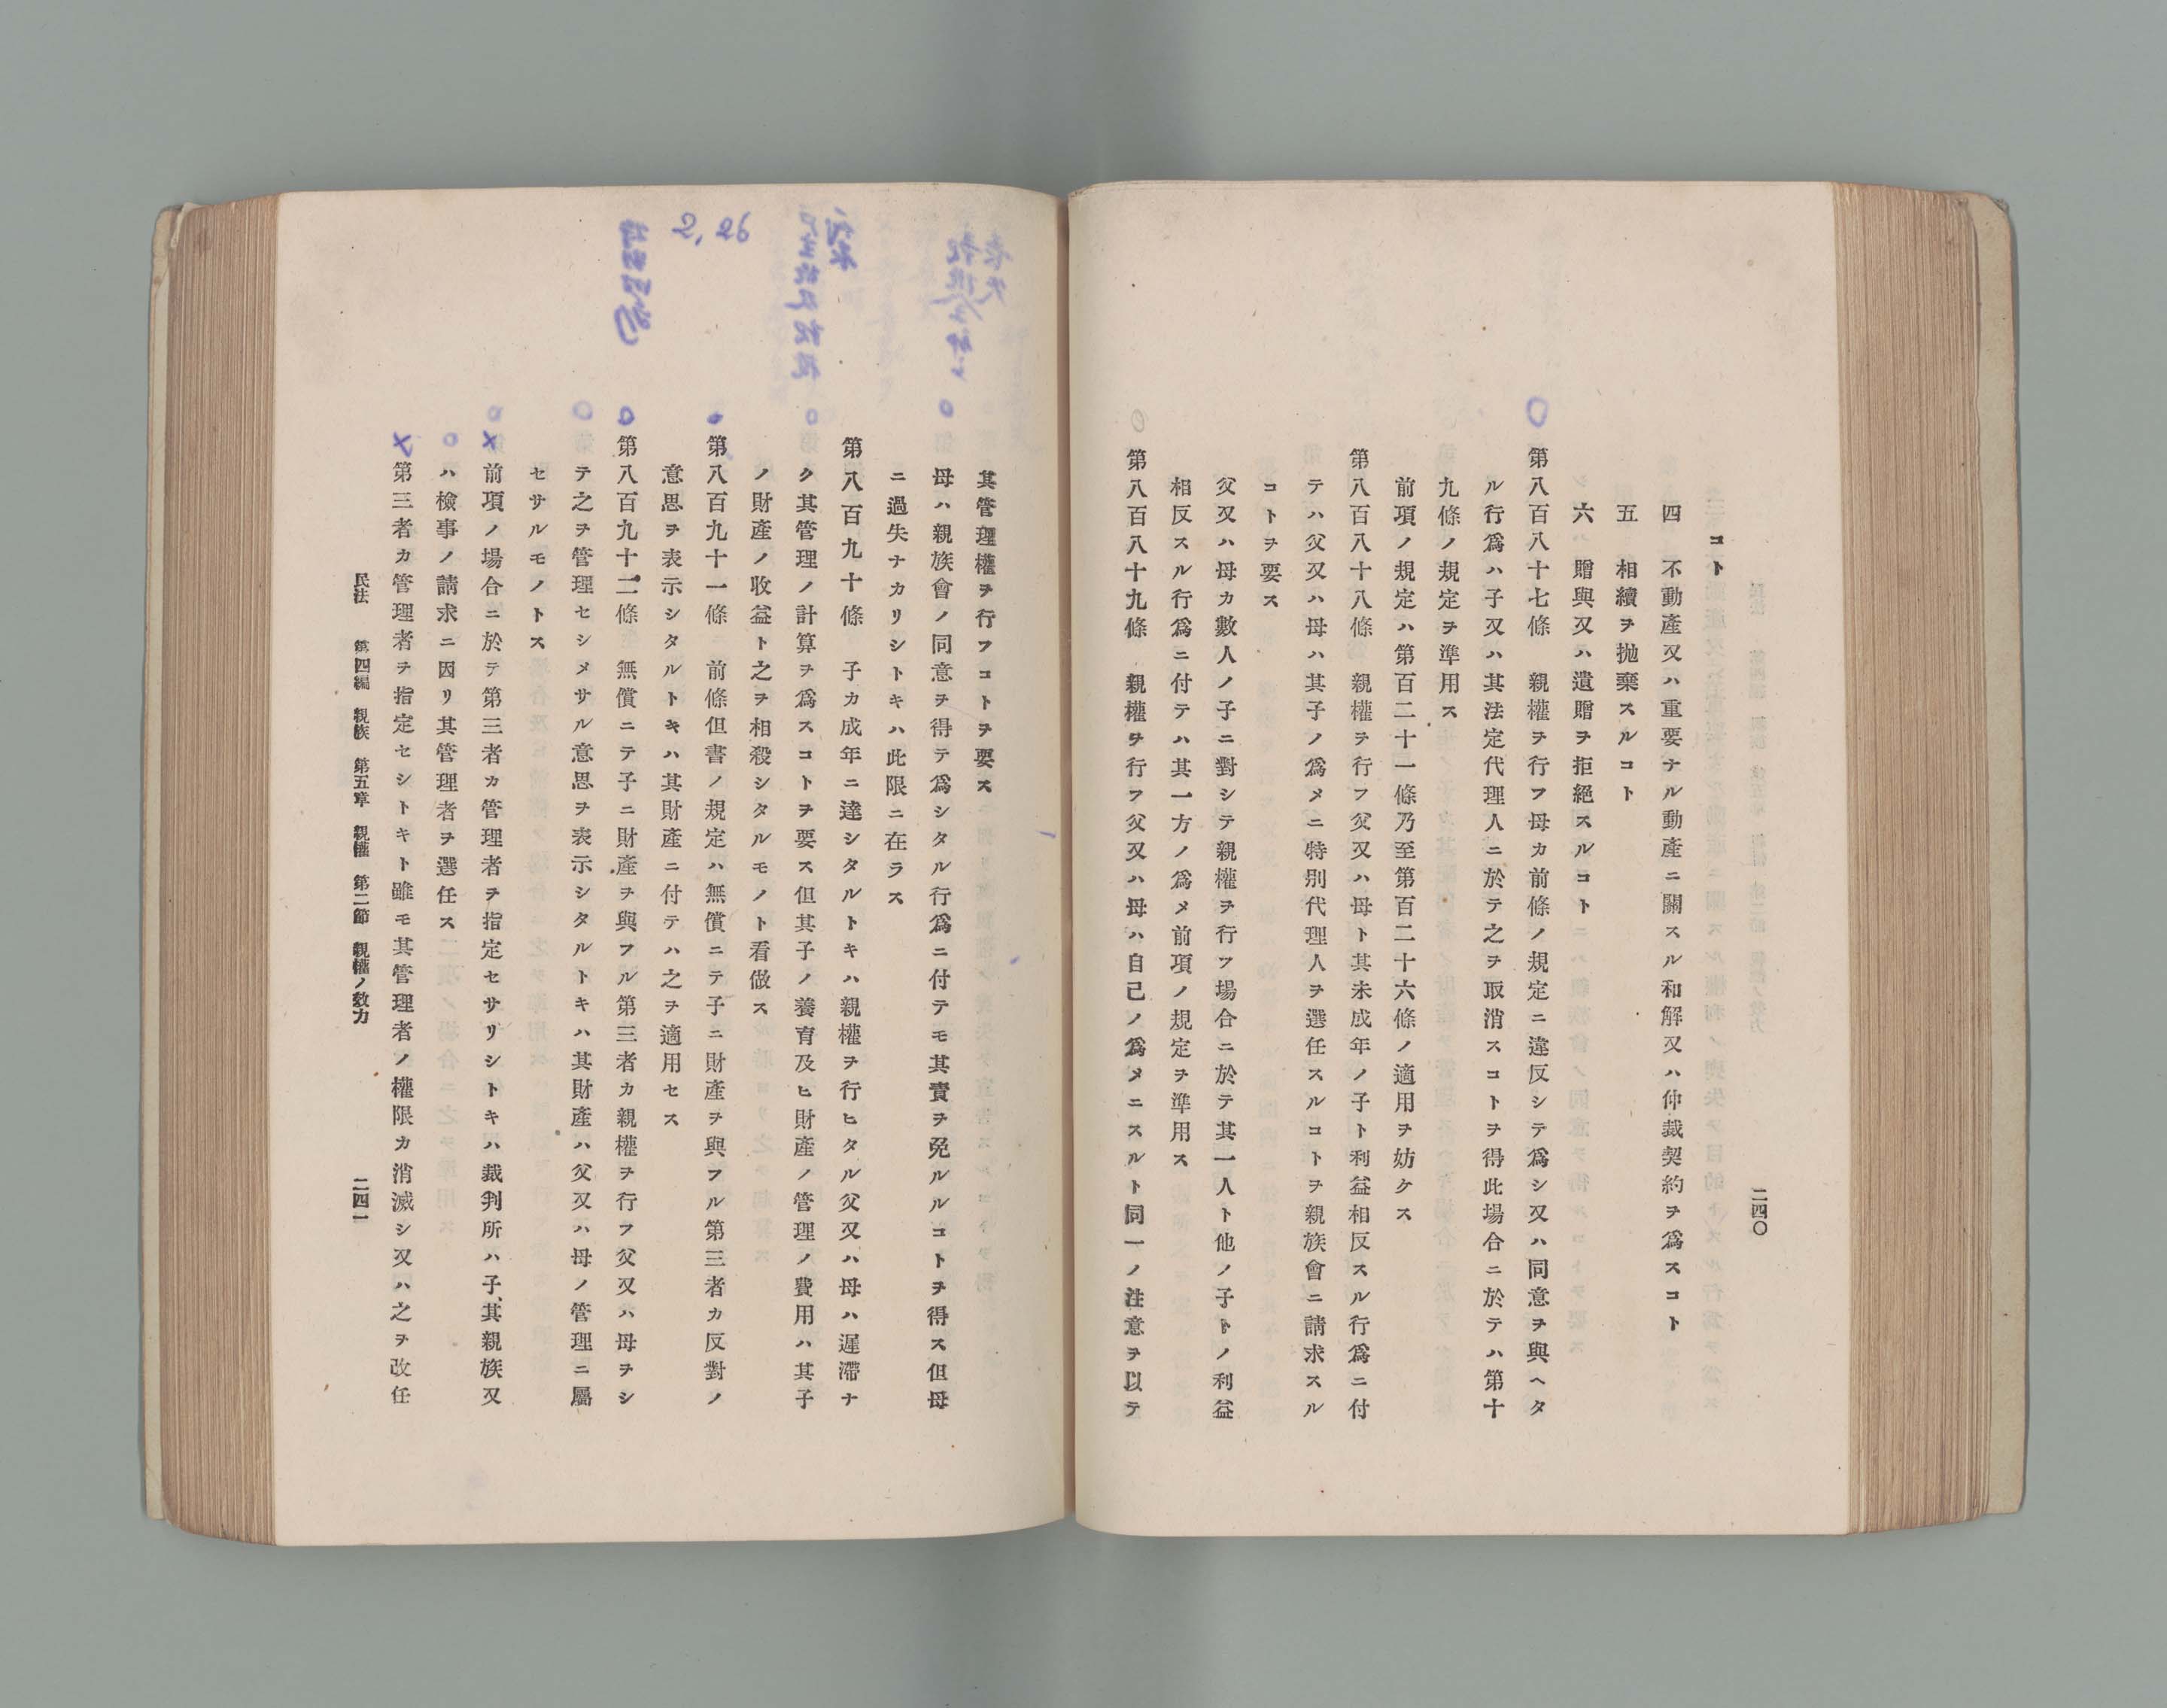 コト
四　不動產又ハ重要ナル動產ニ關スル和解又ハ仲裁契約ヲ爲スコト
五　相續ヲ抛棄スルコト
六　贈與又ハ遺贈ヲ拒絕スルコト
第八百八十七條　親權ヲ行フ母カ前條ノ規定ニ違反シテ爲シ又ハ同意ヲ與ヘタ
ル行爲ハ子又ハ其法定代理人ニ於テ之ヲ取消スコトヲ得此場合ニ於テハ第十
九條ノ規定ヲ準用ス
前項ノ規定ハ第百二十一條乃至第百二十六條ノ適用ヲ妨ケス
第八百八十八條　親權ヲ行フ父又ハ母ト其未成年ノ子ト利益相反スル行爲ニ付
テハ父又ハ母ハ其子ノ爲メニ特別代理人ヲ選任スルコトヲ親族會ニ請求スル
コトヲ要ス
父又ハ母カ數人ノ子ニ對シテ親權ヲ行フ場合ニ於テ其一人ト他ノ子トノ利益
相反スル行爲ニ付テハ其一方ノ爲メ前項ノ規定ヲ準用ス
第八百八十九條　親權ヲ行フ父又ハ母ハ自己ノ爲メニスルト同一ノ注意ヲ以テ
二四〇
其管理權ヲ行フコトヲ要ス
母ハ親族會ノ同意ヲ得テ爲シタル行爲ニ付テモ其責ヲ免ルルコトヲ得ス但母
ニ過失ナカリシトキハ此限ニ在ラス
第八百九十條　子カ成年ニ達シタルトキハ親權ヲ行ヒタル父又ハ母ハ遲滯ナ
ク其管理ノ計算ヲ爲スコトヲ要ス但其子ノ養育及ヒ財產ノ管理ノ費用ハ其子
ノ財產ノ收益ト之ヲ相殺シタルモノト看做ス
第八百九十一條　前條但書ノ規定ハ無償ニテ子ニ財產ヲ與フル第三者カ反對ノ
意思ヲ表示シタルトキハ其財產ニ付テハ之ヲ適用セス
第八百九十二條　無償ニテ子ニ財產ヲ與フル第三者カ親權ヲ行フ父又ハ母ヲシ
テ之ヲ管理セシメサル意思ヲ表示シタルトキハ其財產ハ父又ハ母ノ管理ニ屬
セサルモノトス
前項ノ場合ニ於テ第三者カ管理者ヲ指定セサリシトキハ裁判所ハ子、其親族又
ハ檢事ノ請求ニ因リ其管理者ヲ選任ス
第三者カ管理者ヲ指定セシトキト雖モ其管理者ノ權限カ消滅シ又ハ之ヲ改任
民法　第四編　親族　第五章　親權　第二節　親權ノ效力
二四一
2,26